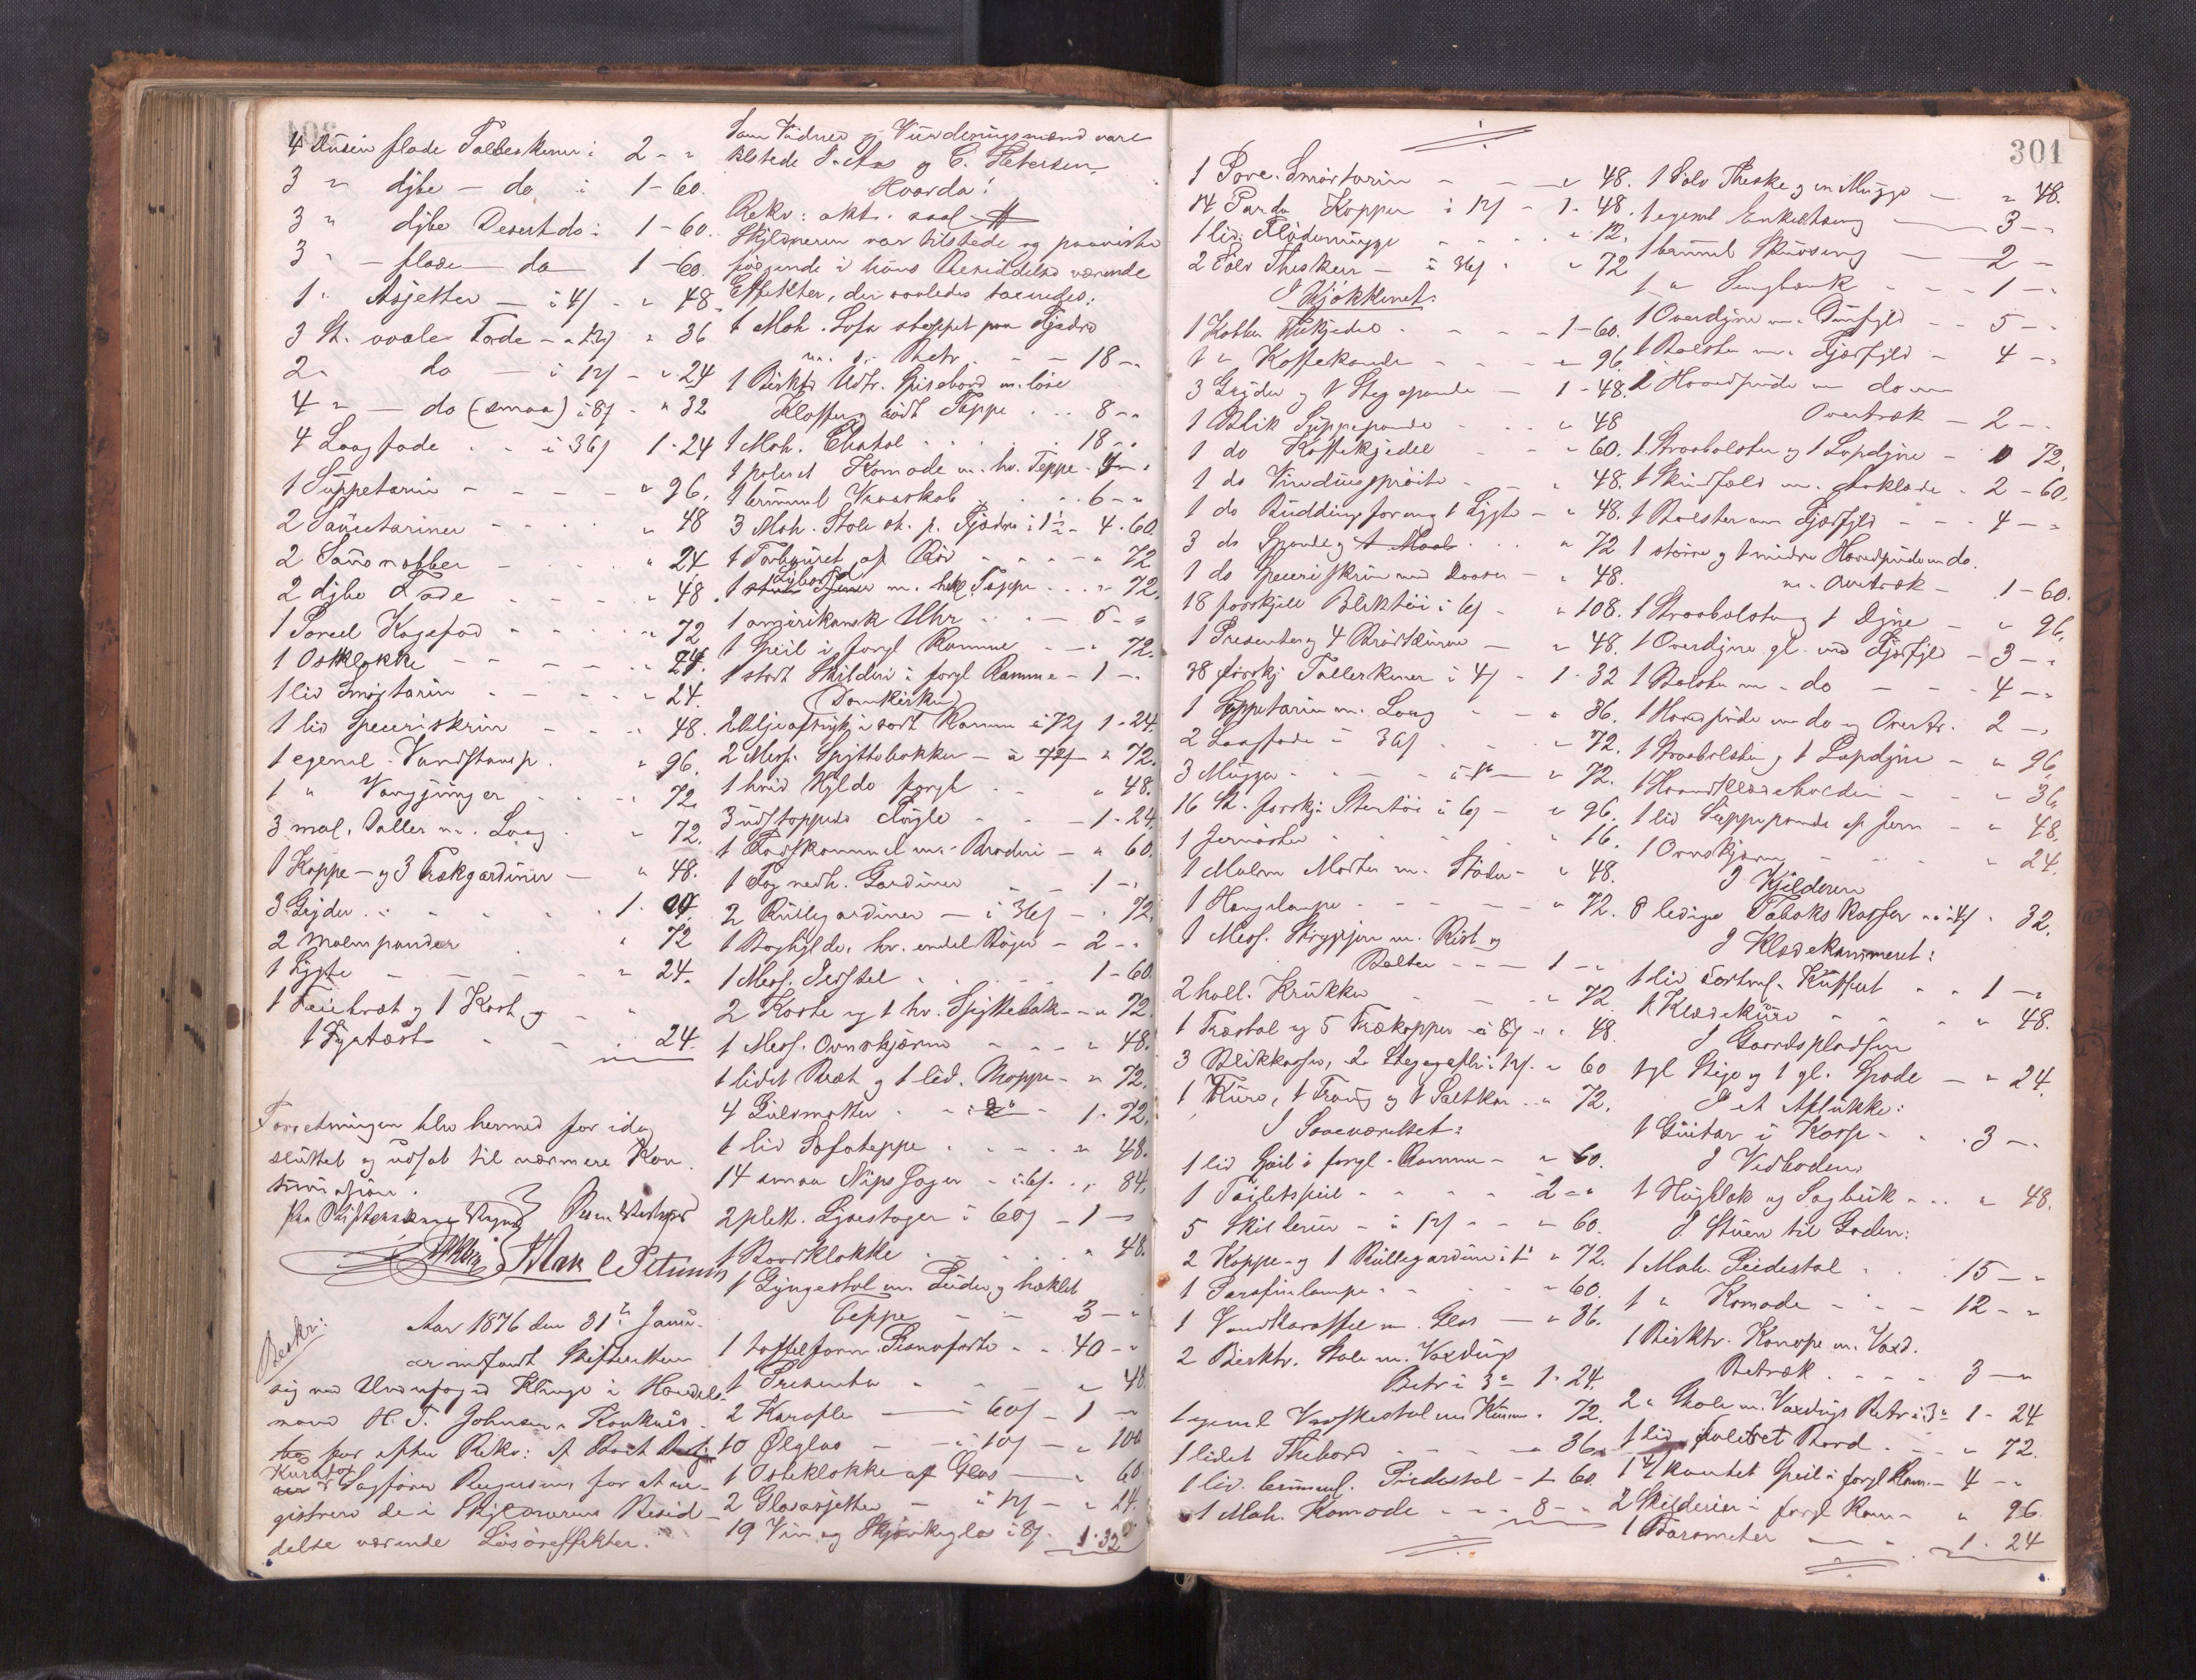 4 Dusin flade Tallerkener i 2 - "
3 " dybe - do i 1 - 60.
3 " dybe Desert do i 1 - 60.
3 " - flade - do 1 - 60.
1 " Asjetter - i 4 - " 48.
3 St. ovale Fade - a 12 " 36
2 " do - i 12 - " 24
4 " - do (smaa) i 8 - " 32
4 Laagfade - i 36 1 - 24
1 Suppeterin - - - " 96.
2 Sauceteriner - - - " 48
2 - - - " 24
2 dybe Fade - - - " 48.
1 Kagefad - - - " 72
1 Osteklokke - - - " 24.
1 lid - - - " 24.
1 lid Speceriskrin - - - " 48.
1 egeml. Vandstamp. " 96.
1 " - - " 72.
3 mal. Baller m. Laag - " 72.
1 Kappe - og 3 Trækgardiner - " 48.
3 Gryder - - - 1. 24.
2 Malmpander " 72
1 Lygte - - - " 24.
1 Feiebræt og 1 Kost og
1 - - 24.
Forretningen blev hermed for idag
sluttet og udsat til nærmere Kon-
CPetersen
Beskr:
Aar 1876 den 31te Janu-
ar indfandt Skifteretten
sig ved Underfoged Klinge i Handels-
mand H. T. Johnsens Konkurs-
bo for efter Rekv: af
Kurator Sagfører for at re-
gistrere de i Skyldnerens Besid-
delse værende Løsøreffekter.
Som Vidner og Vurderingsmænd vare
tilstede og C. Petersen.
Hvorda!
Rekv: akt.
Skyldneren var tilstede og paaviste
følgende i hans Besiddelse værende
Effekter, der saaledes taxeredes:
1 Mah. Sofa stoppet paa Fjædre
m. Betr. - - 18 - "
1 Birktr. Udtr. Spisebord m. løse
Klaffer og rødt Teppe - - 8 - "
1 Mah. Chatol - - - 18 - "
1 poleret Komode m. hv. Teppe - 4 - "
1 brunml. Vaaaskab - - 6 - "
3 Mah. Stole st. p. Fjædre i 1½ - 4 - 60.
1 af Rør - - - " 72
1 m. hekl. Teppe - - " 72.
1 amerikansk Uhr - - 5 - "
1 Speil i forgl. Ramme - - " 72.
1 stort Skilderi i forgl Ramme - 1 - "
(Domkirken)
2 Oljeaftryk i sort Ramme i 72 1 - 24.
2 Mess. Spyttebakker - à 72 " 72.
1 hvid Hylde forgl. - " 48.
3 udstoppede Fugle - - 1 - 24.
1 Fodskammel m. Broderi - " 60.
1 Fag nedh. Gardiner - 1 - "
2 Rullegardiner - i 36 - " 72.
1 Boghylde, hv. endel Bøger - 2 - "
1 Mess. - - 1 - 60.
2 Koste og 1 hv. Spyttebak - " 72.
1 Mess. Ovnskjærm - - - " 48.
1 lidet Bræt og 1 lid. Moppe - " 72.
4 Gulvmatter - - 1 - 72.
1 lid Sofateppe - - - " 48.
14 smaa Nips Sager - i 6 - " 84.
2 plek. Lysestager i 60 - 1 - "
1 Bordklokke - - - " 48.
1 Gyngestol m. Pude og hæklet
Teppe - - 3 - "
1 taffelform. Pianoforte - - 40 - "
1 Presenter - - - " 48.
2 Karafler - i 60 - 1 - "
10 Ølglas - - i 10 - " 100
1 Osteklokke af Glas - " 60.
2 Glasasjetter - i 12 - " 24.
19 Vin og Skjænkeglas i 8 - 1 - 32
301
1 Porc. Smørterin - - - " 48.
14 Par do Kopper i 12 - 1 - 48.
1 lid. Flødemugge - - - " 12.
2 Sølv Theskeer - à 36 - " 72
I Kjøkkenet:
1 Kobber Thekjedel - - - 1 - 60.
1 " Kaffekande - - - " 96.
3 Gryder og 1 Stegepande - 1 - 48.
1 Blik Suppepande - - - " 48
1 do Kaffekjedel - - " 60.
1 do - - " 48.
1 do Buddingform og 1 Lygte - " 48.
3 do Spande og 1 Maal - - " 72
1 do Speceriskrin med Daaser - " 48.
18 forskjell. Bliktøi i 6 - " 108.
1 Presenter og 4 Brødkurve - " 48.
38 forskj. Tallerkener i 4 - 1 - 32
1 Suppeterin m. Laag - - " 36.
2 Laagfade i 36 - - " 72.
3 Mugger - - - - " 72.
16 St. forskj. Stentøi i 6 - " 96.
1 Jernmorter - - - " 16.
1 Malm Morter m. Støder - " 48.
1 Hængelampe - - - " 72.
1 Mess. Strygejern m. Rist og
Bolter - - - 1 - "
2 holl. Krukker - - - " 72
1 Træstol og 5 Trækopper - à 8 - " 48
3 Blikkasser, 2 i 12 - " 60
1 Kurv, 1 Traug og 1 Saltkar - " 72.
I Soveværelset:
1 lid Speil i forgl. Ramme - " 60.
1 Toiletspeil - - - 2 - "
5 Skilderier - à 12 - - " 60.
2 Kappe- og 1 Rullegardin i 1 " 72.
1 Parafinlampe - - - " 60.
1 Vandkaraffel m. Glas - " 36.
2 Birktr. Stole m. Voxdugs
Betr i 3 1 - 24.
1 egeml Vaskestol m. " 72.
1 lidet Thebord - - - " 36.
1 lid. brunml. Piedestal - " 60.
1 Mah. Komode - - - 8 - "
1 Sølv Theske og en Mugge - " 48.
1 egeml Enkeltseng - 3 - "
1 brunml Skuvseng - 2 - "
1 " Sengbænk - - - 1 - "
1 Overdyne m. Dunfyld - - 5 - "
1 Bolster m. Fjærfyld - 4 - "
2 Hovedpuder m do m
Overtræk - 2 - "
1 Straabolster og 1 Lapdyne - " 72.
1 Skindfeld m. Aaklæde - 2 - 60.
1 Bolster m Fjærfyld - - 4 - "
1 større og 1 mindre Hovedpude m do.
m. Overtræk - 1 - 60.
1 Straabolster og 1 Dyne - " 96.
1 Overdyne gl. med Fjærfyld - 3 - "
1 Bolster m. do - - 4 - "
1 Hovedpude m do og Overtr. 2 - "
1 Straabolster og 1 Lapdyne - " 96.
1 Haandklædeholder - - " 36.
1 lid Suppepande af Jern - " 48.
1 Ovnskjærm - - - " 24.
I Kjelderen
8 ledige Tobaks Kasser - i 4 - 32.
I Klædekammeret:
1 lid sortml. Kuffert - - 1 - "
1 Klædekurv - - - " 48.
I Gaardspladsen
1 gl Stige og 1 gl. Spade - " 24.
I et Aflukke:
1 Guitar i Kasse - - 3 - "
I Vedboden
1 Hugblok og Sagbuk - - " 48.
I Stuen til Gaden:
1 Mah. Piedestal - - 15 - "
1 " Komode - - - 12 - "
1 Birktr. Kanape m. Voxd.
Betræk - - - 3 - "
2 " Stole m. Voxdugs Betr i 3 1 - 24
1 lid poleret Bord - - " 72.
1 kantet Speil i forgl Ram. - 4 - "
2 Skilderier i forgl Ram - " 96.
1 Barometer - - - 1 - 24